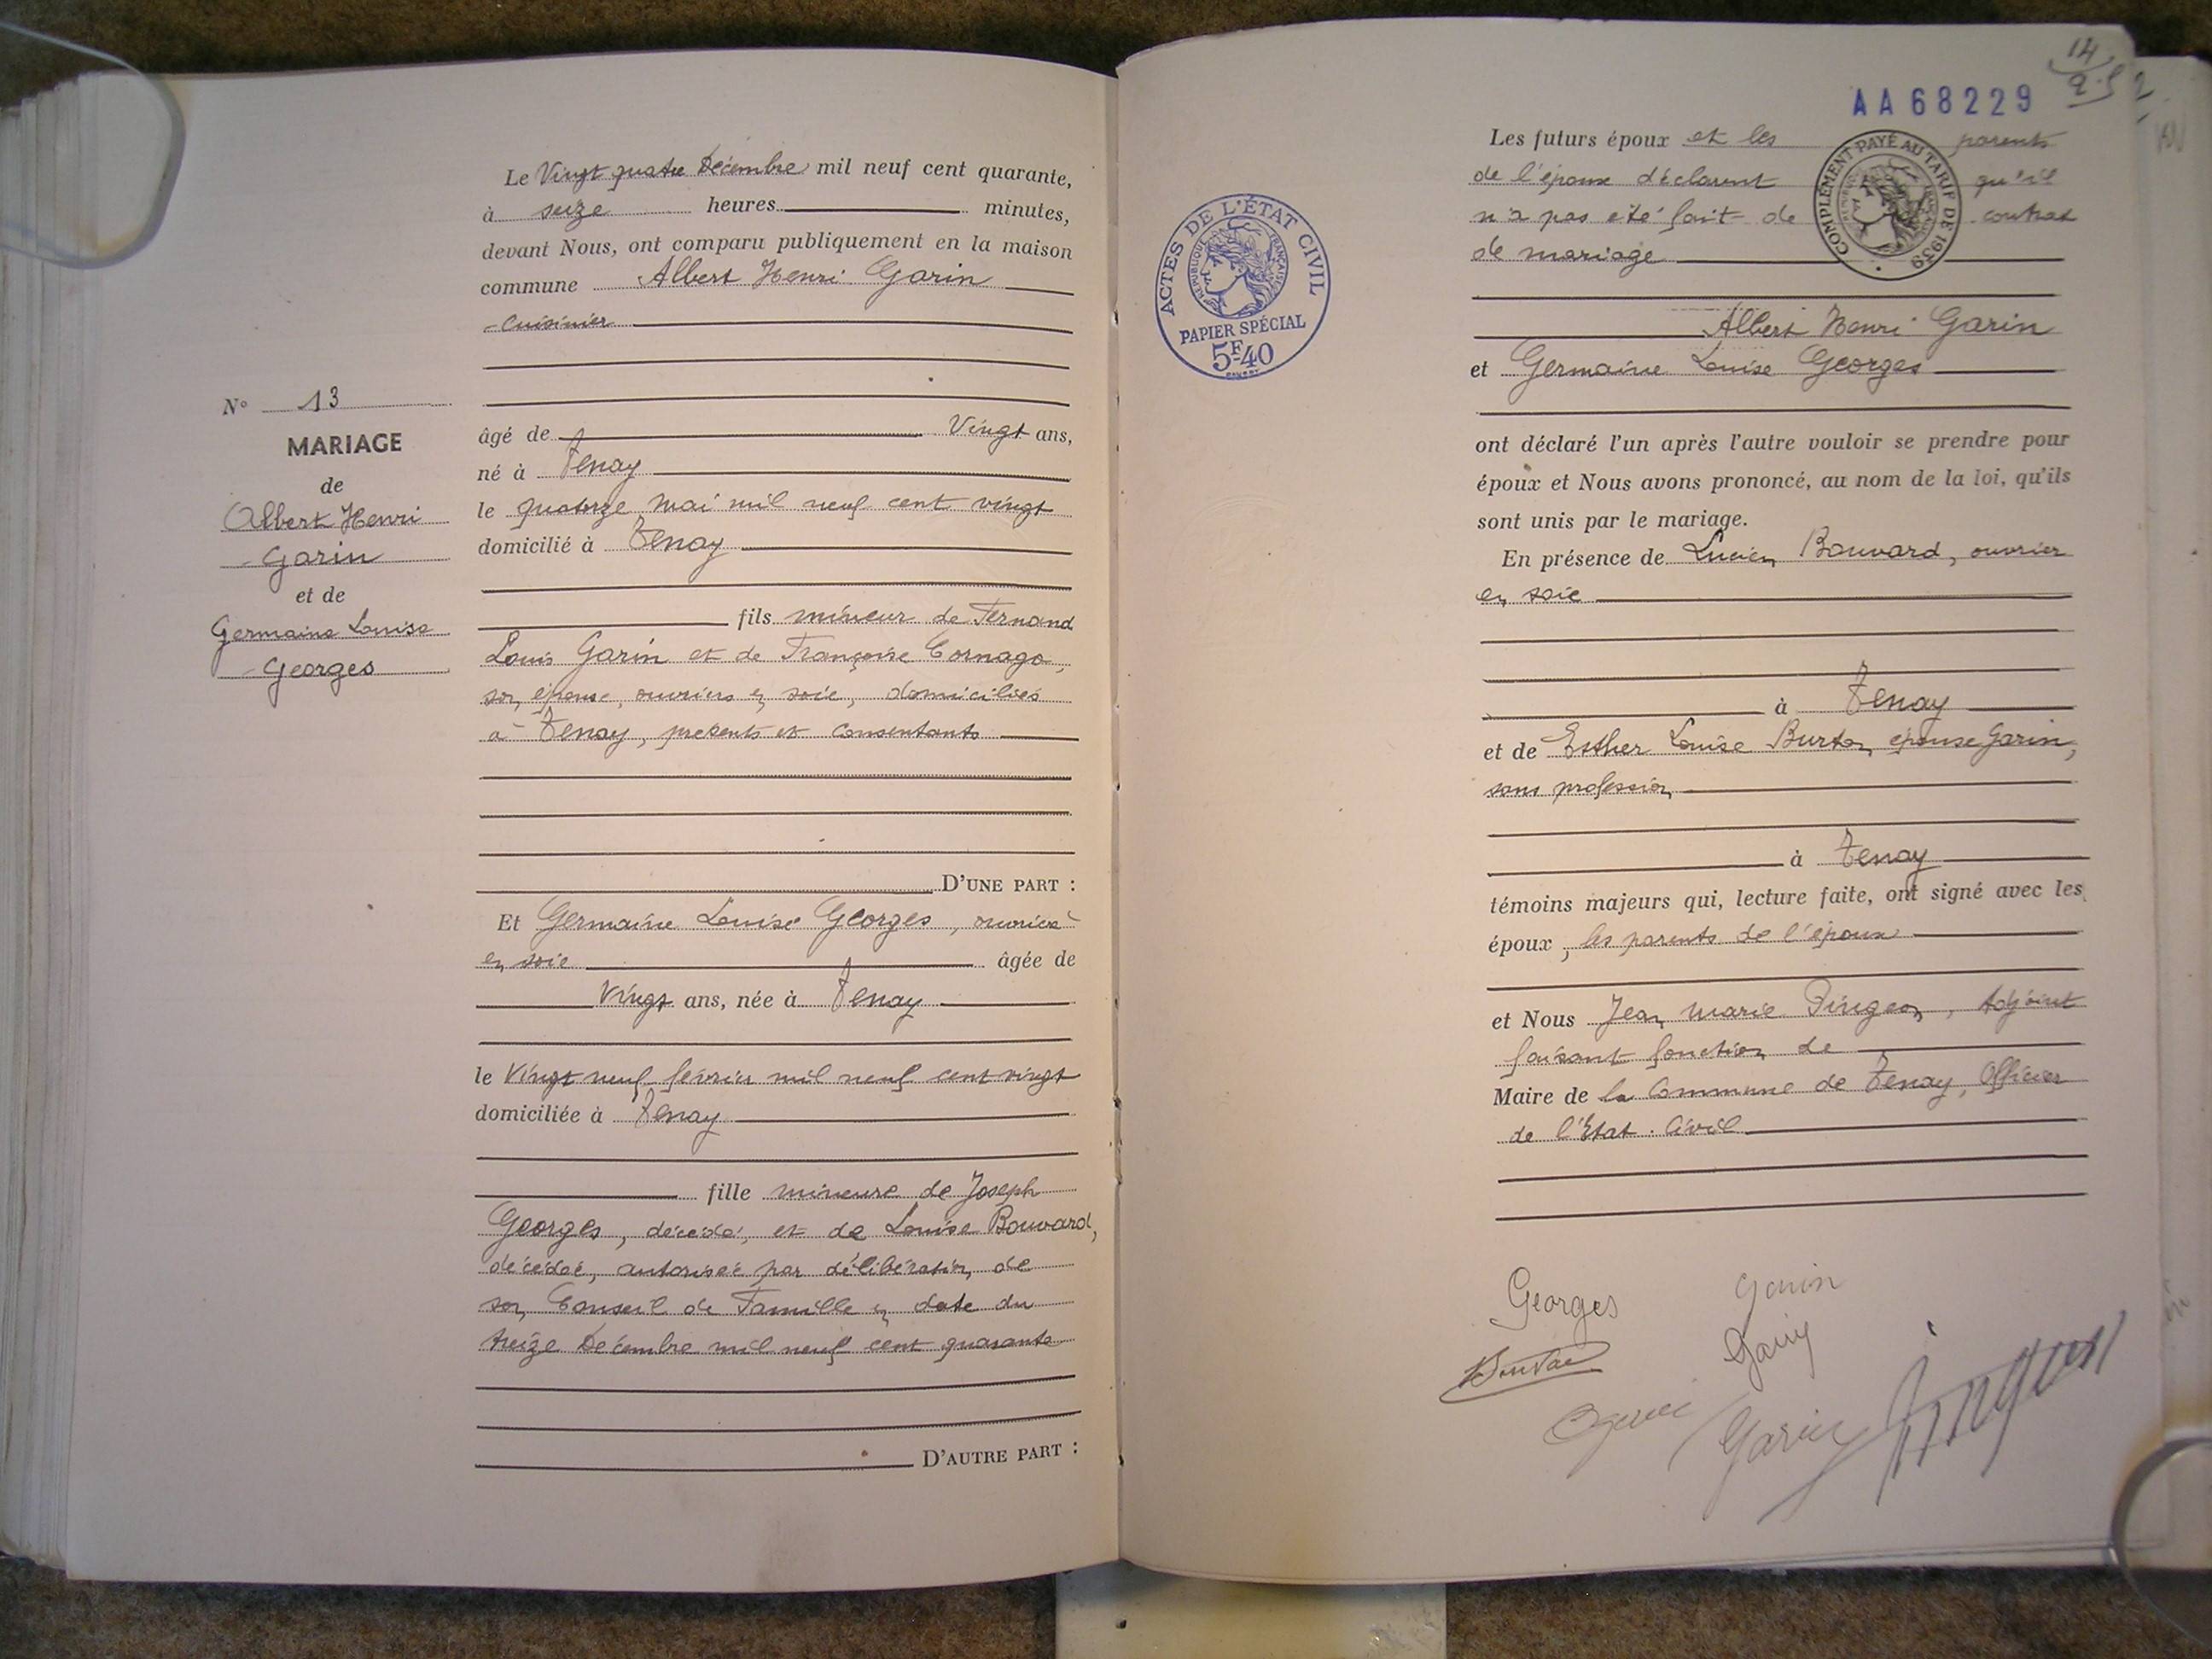 N° 13
MARIAGE
de
Albert Henri
Garin
et de
Germaine Louise
Georges
Le Vingt quatre Décembre mil neuf cent quarante,
à seize heures minutes,
devant Nous, ont comparu publiquement en la maison
commune Albert Henri Garin
cuisinier
âgé de Vingt ans,
né à Tenay
le quatorze mai mil neuf cent vingt
domicilié à Tenay
fils mineur de Fernand
Louis Garin et de Françoise Cornago,
son épouse, ouvriers en soie, domiciliés
à Tenay, présents et consentants
D'UNE PART :
Et Germaine Louise Georges, ouvrière
en soie âgée de
Vingt ans, née à Tenay
le Vingt neuf février mil neuf cent vingt
domiciliée à Tenay
fille mineure de Joseph
Georges, décédé, et de Louise Bouvard,
décédée, autorisée par délibération de
son Conseil de Famille en date du
treize Décembre mil neuf cent quarante
D'AUTRE PART :
AA 68229
14
ACTES DE L'ÉTAT CIVIL
RÉPUBLIQUE FRANÇAISE
PAPIER SPÉCIAL
5F40
COMPLÉMENT PAYÉ AU TARIF DE 1939
Les futurs époux et les parents
de l'époux déclarent qu'il
n'a pas été fait de contrat
de mariage
Albert Henri Garin
et Germaine Louise Georges
ont déclaré l'un après l'autre vouloir se prendre pour
époux et Nous avons prononcé, au nom de la loi, qu'ils
sont unis par le mariage.
En présence de Lucien Bouvard, ouvrier
en soie
à Tenay
et de Esther Louise Burton épouse Garin,
sans profession
à Tenay
témoins majeurs qui, lecture faite, ont signé avec les
époux, les parents de l'époux
et Nous Jean Marie Pingeon, Adjoint
faisant fonction de
Maire de la Commune de Tenay, Officier
de l'Etat Civil
Georges
Garin
Garin
Garin
Pingeon